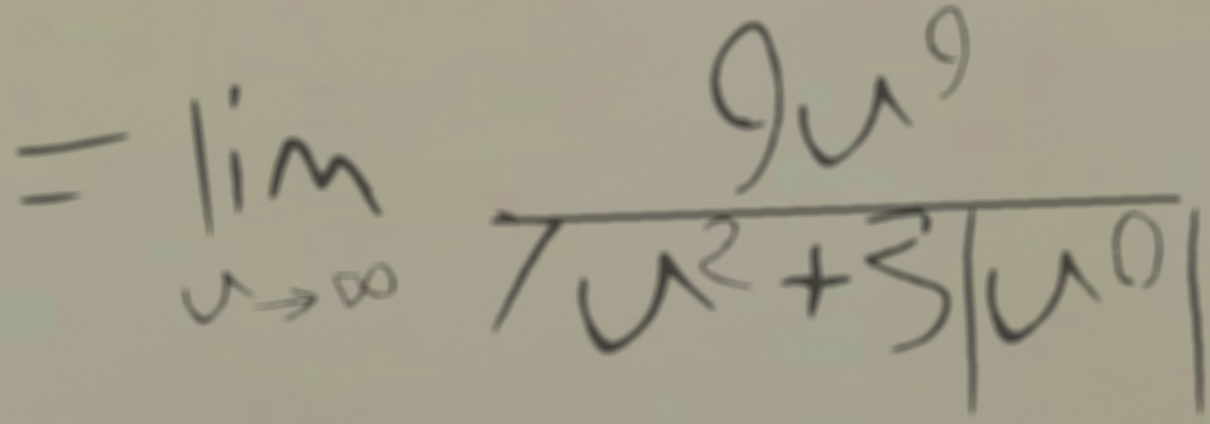 = lim_{u→∞} \frac{9u^9}{7u^2+5|u^0|}